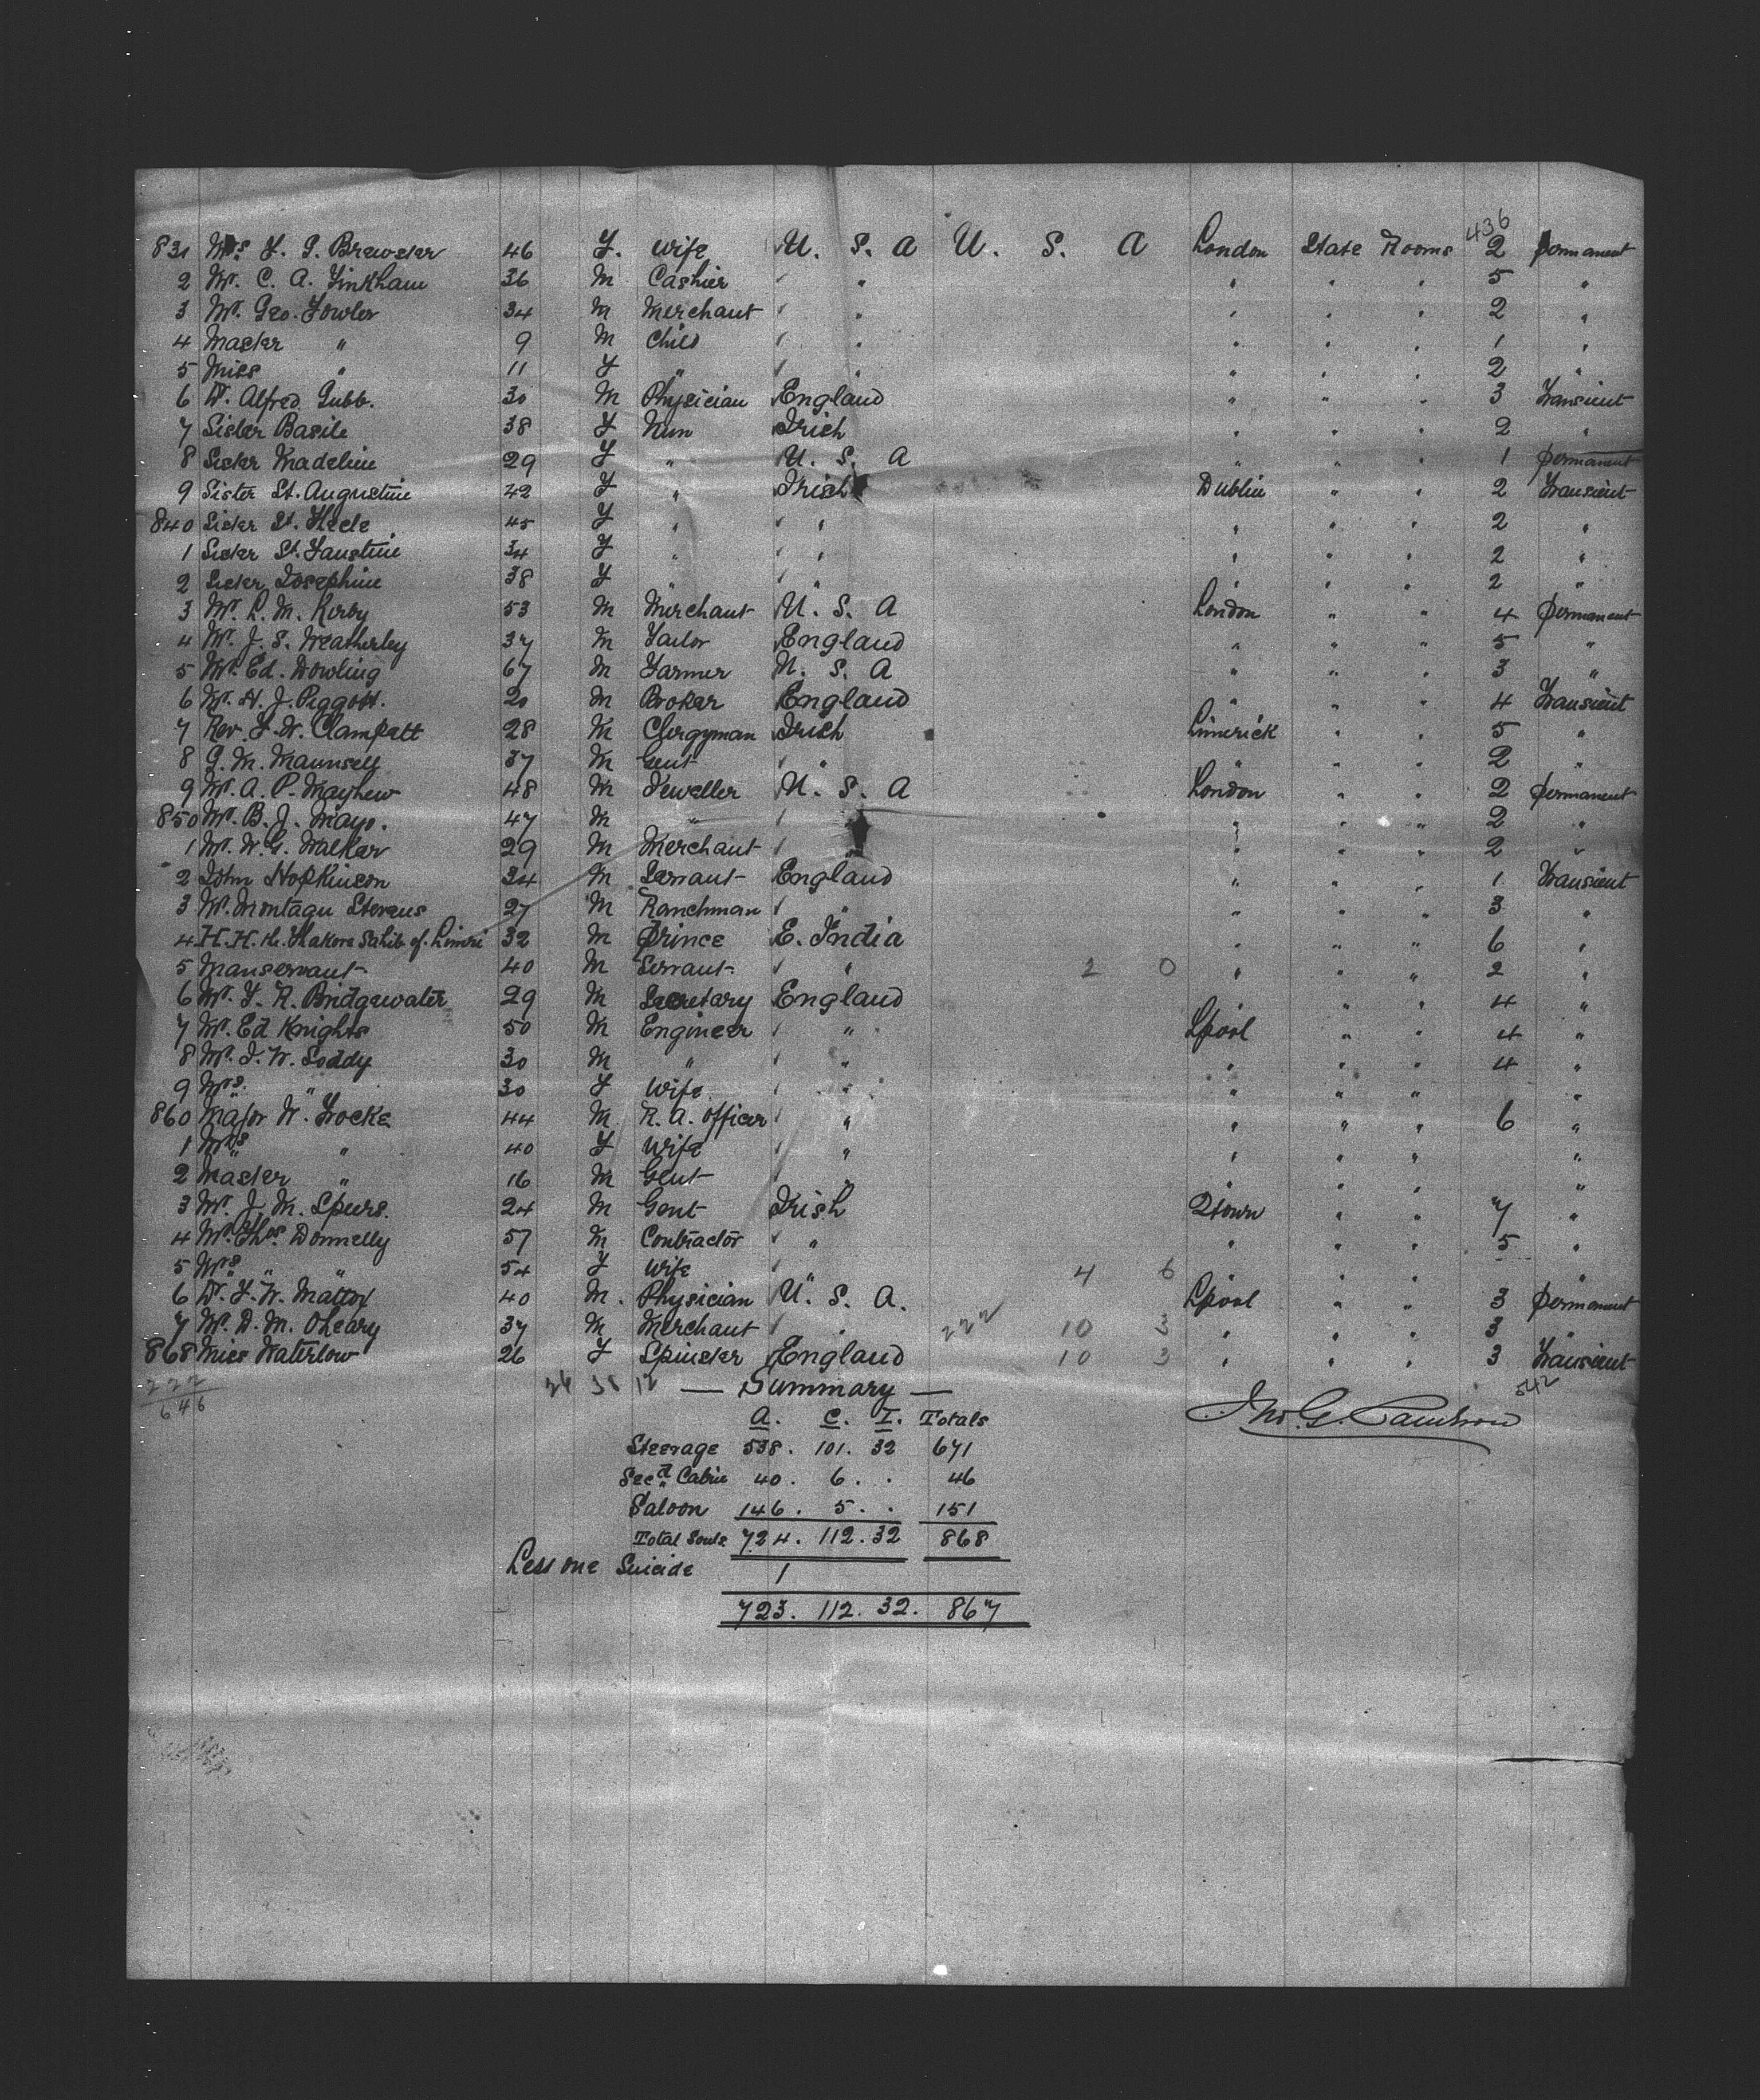 436
831 Mrs F. G. Brewster 46 F. Wife U. S. A U. S. A London State Rooms 2 Permanent
2 Mr. C. A. Tinkham 36 M Cashier " " " " " 5 "
3 Mr. Geo. Fowler 34 M Merchant " " " " " 2 "
4 Master " 9 M Child " " " " " 1 "
5 Miss " 11 F " " " " " " 2 "
6 Dr. Alfred Gubb. 30 M Physician England " " " 3 Transient
7 Sister Basile 38 F Nun Irish " " " 2 "
8 Sister Madeline 29 F " U. S. A " " " 1 Permanent
9 Sister St. Augustine 42 F " Irish Dublin " " 2 Transient
840 Sister St. Thecle 45 F " " " " " " 2 "
1 Sister St. Faustine 34 F " " " " " " 2 "
2 Sister Josephine 38 F " " " " " " 2 "
3 Mr. L. M. Kirby 53 M Merchant U. S. A London " " 4 Permanent
4 Mr. J. S. Weatherley 37 M Tailor England " " " 5 "
5 Mr. Ed. Dowling 67 M Farmer U. S. A " " " 3 "
6 Mr. H. J. Piggott. 20 M Broker England " " " 4 Transient
7 Rev. F. W. Clampett 28 M Clergyman Irish Limerick " " 5 "
8 G. M. Maunsell 37 M Gent " " " " " 2 "
9 Mr. A. P. Mayhew 48 M Jeweller U. S. A London " " 2 Permanent
850 Mr. B. J. Mayo. 47 M " " " " " 2 "
1 Mr. W. G. Walker 29 M Merchant " " " " " 2 "
2 John Hopkinson 34 M Servant England " " " 1 Transient
3 Mr. Montagu Stevens 27 M Ranchman " " " " " 3 "
4 H. H. the Thakore Sahib of Limri 32 M Prince E. India " " " 6 "
5 Manservant 40 M Servant " " 2 0 " " " 2 "
6 Mr. F. R. Bridgewater 29 M Secretary England " " 4 "
7 Mr. Ed Knights 50 M Engineer " " Lpool " " 4 "
8 Mr. J. W. Soddy 30 M " " " " " 4 "
9 Mrs. " 30 F Wife " " " " " "
860 Major W. Locke 44 M R. A. Officer " " " " " 6 "
1 Mrs " 40 F Wife " " " " " "
2 Master " 16 M Gent " " " " " "
3 Mr. J. M. Spurs. 24 M Gent Irish Qtown " " 7 "
4 Mr. Thos. Donnelly 57 M Contractor " " " " " 5 "
5 Mrs " " 54 F Wife " " 4 6 " " " "
6 Dr. F. W. Mattox 40 M. Physician U. S. A. Lpool " " 3 Permanent
7 Mr. D. M. OLeary 37 M Merchant " " 222 10 3 " " " 3 "
868 Miss Waterlow 26 F Spinster England 10 3 " " " 3 Transient
222
646
542
— Summary —
A. C. I. Totals
Steerage 538. 101. 32 671
Secd Cabin 40. 6. . 46
Saloon 146. 5. . 151
Total Souls 724. 112. 32 868
Less one Suicide 1
723. 112. 32. 867